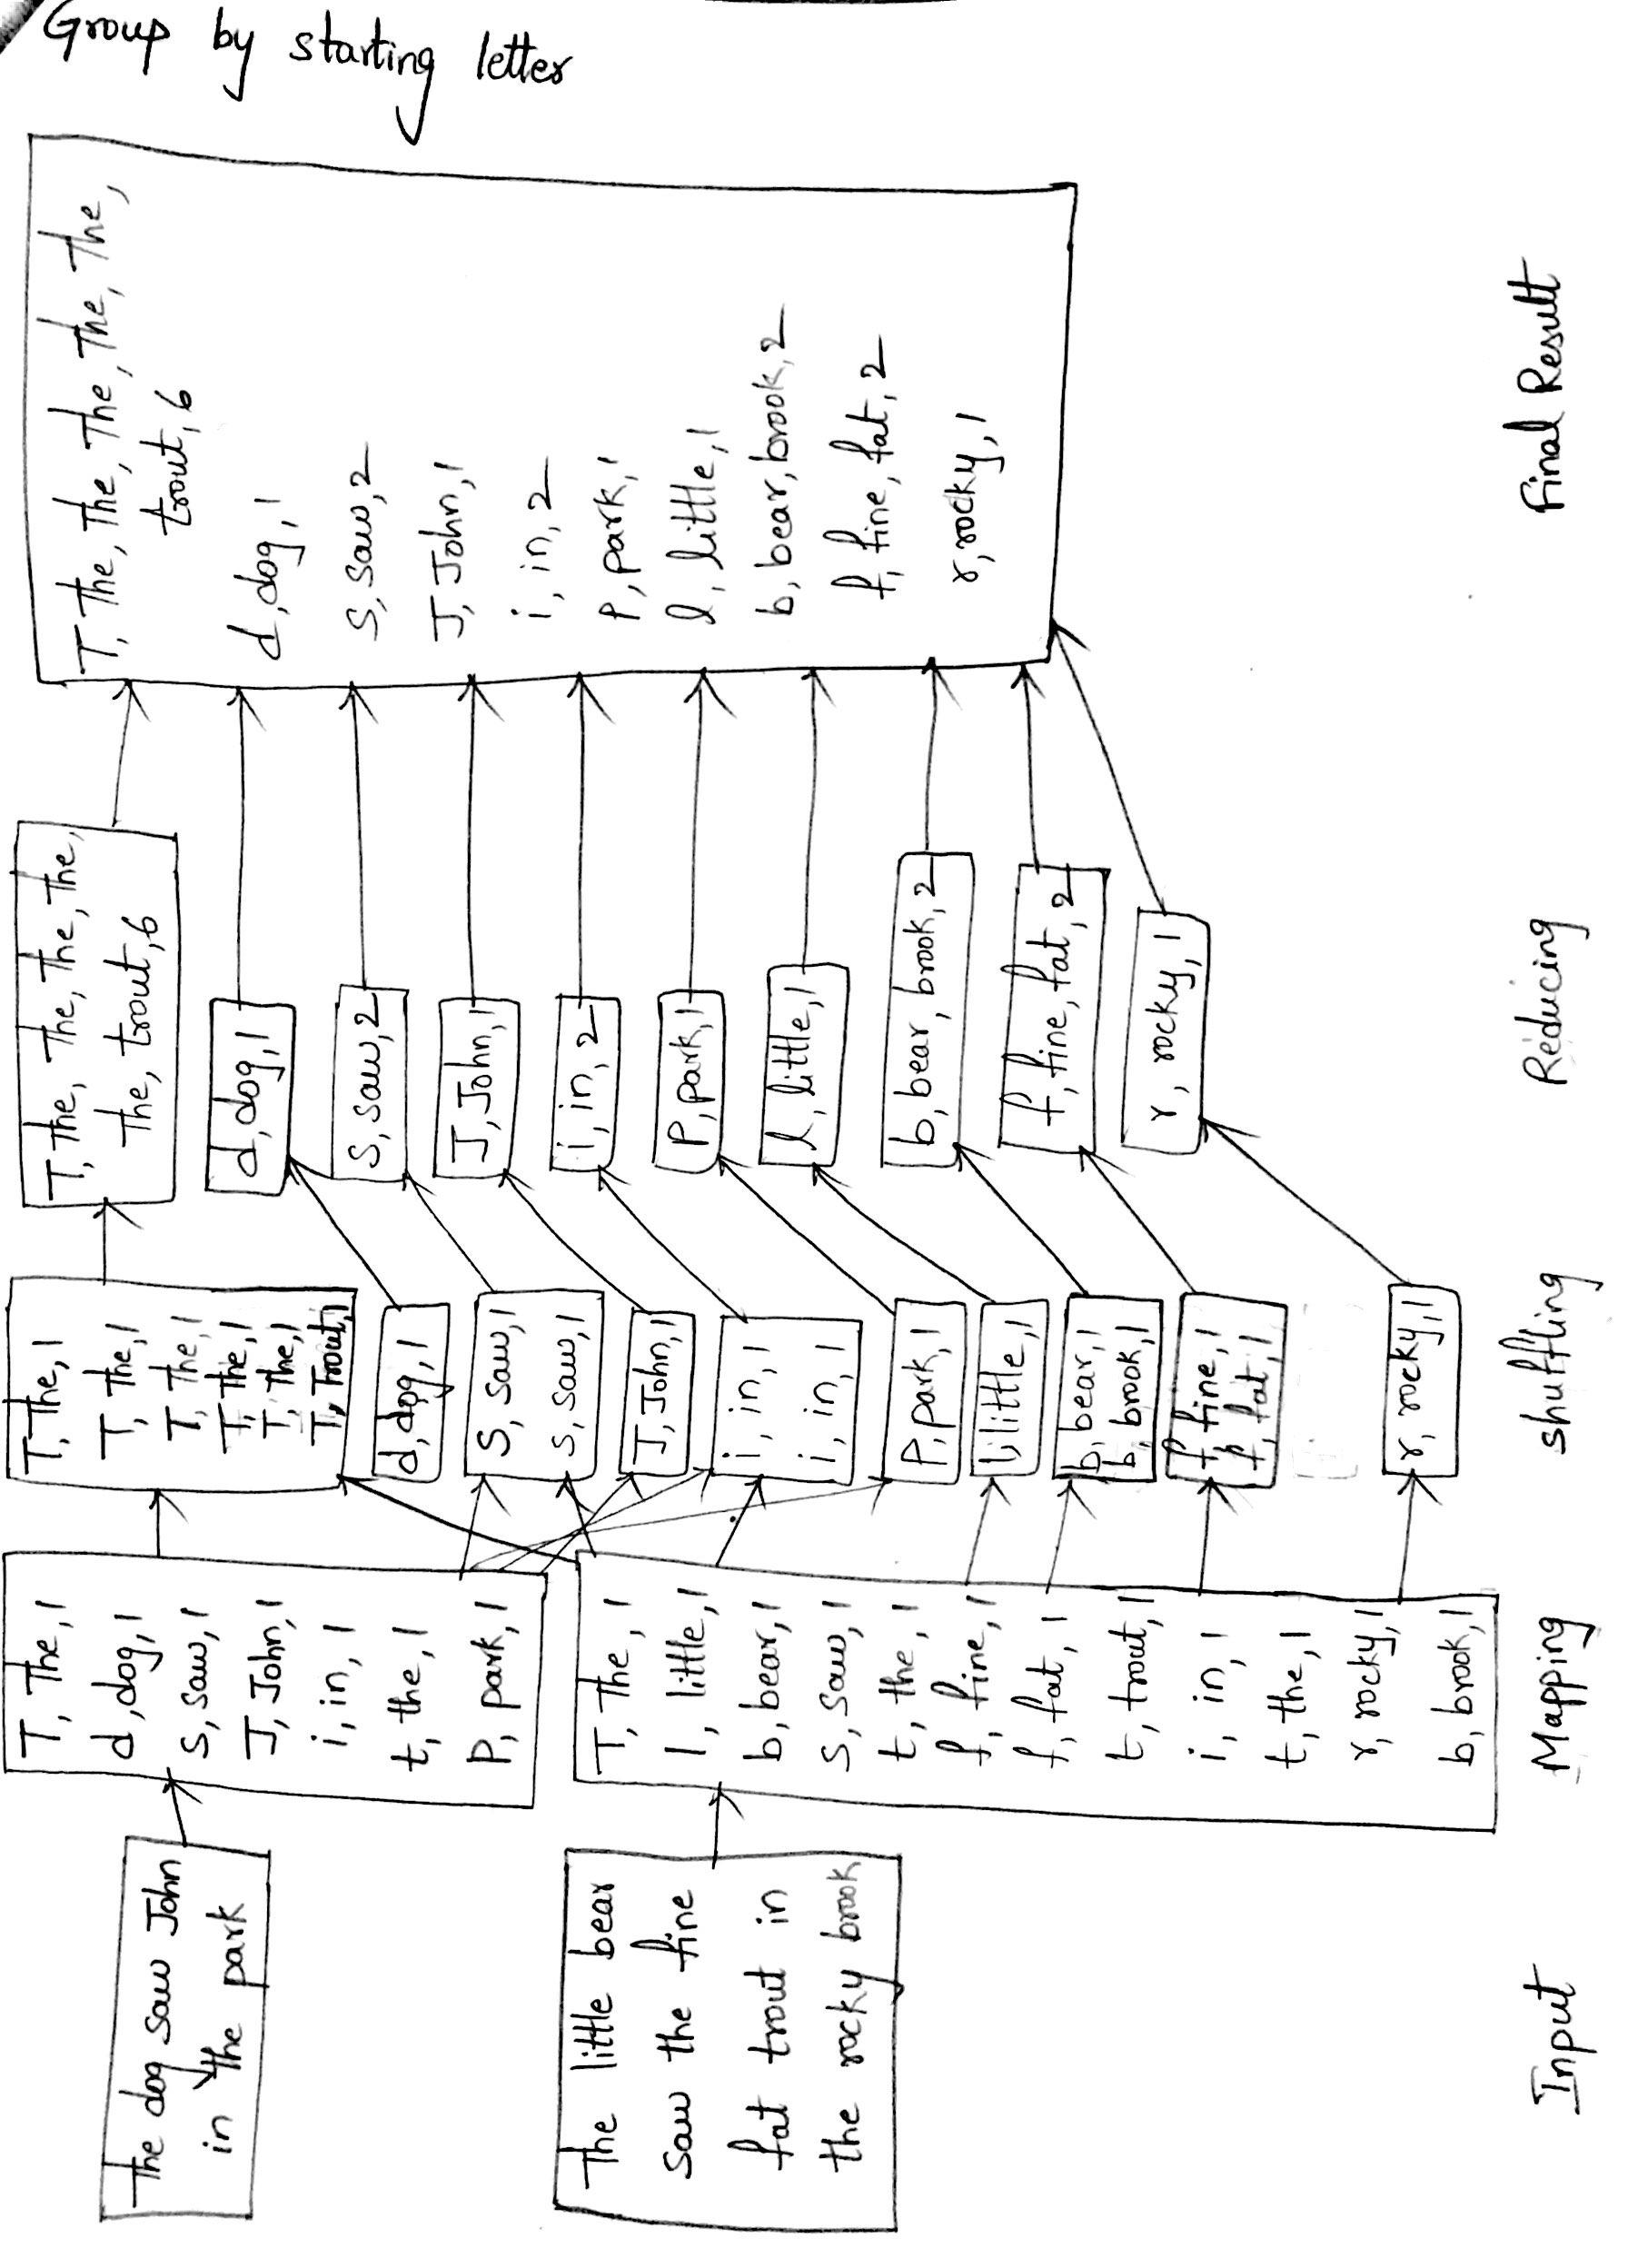 Group by starting letter
The dog saw John
in the park
The little bear
saw the fine
fat trout in
the rocky brook
Input
T, The, 1
d, dog, 1
S, saw, 1
J, John, 1
i, in, 1
t, the, 1
P, park, 1
T, The, 1
l, little, 1
b, bear, 1
S, saw, 1
t, the, 1
f, fine, 1
f, fat, 1
t, trout, 1
i, in, 1
t, the, 1
r, rocky, 1
b, brook, 1
Mapping
T, The, 1
T, The, 1
T, The, 1
T, The, 1
T, The, 1
T, Trout, 1
d, dog, 1
S, saw, 1
s, saw, 1
J, John, 1
i, in, 1
i, in, 1
P, park, 1
l, little, 1
b, bear, 1
b, brook, 1
f, fine, 1
f, fat, 1
r, rocky, 1
shuffling
T, The, The, The, The,
The, trout, 6
d, dog, 1
S, saw, 2
J, John, 1
i, in, 2
P, park, 1
l, little, 1
b, bear, brook, 2
f, fine, fat, 2
r, rocky, 1
Reducing
T, The, The, The, The, The,
trout, 6
d, dog, 1
S, saw, 2
J, John, 1
i, in, 2
P, park, 1
l, little, 1
b, bear, brook, 2
f, fine, fat, 2
r, rocky, 1
Final Result